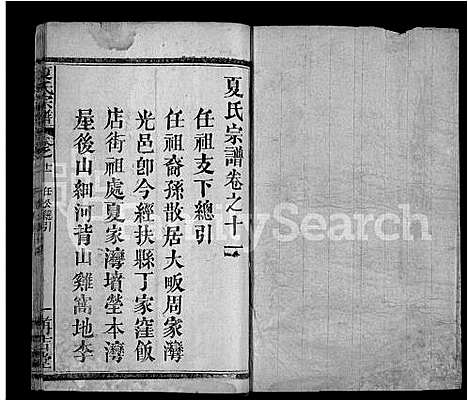 夏氏宗譜卷之十一
任祖支下總引
任祖裔孫散居大畈周家灣
光邑卽今經扶縣丁家窪飯
店街祖處夏家灣墳塋本灣
屋後山細河背山雞窩地李
夏氏宗譜
卷之十一
任公總引
FamilySearch